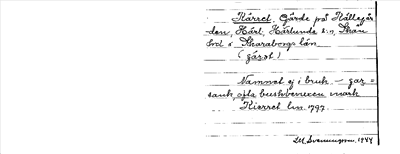 Kärret, Gärde på Källegår
den, Härl. Härlunda s:n, Skan
hrd i Skaraborgs län.
(gärst)
Namnet ej i bruk. – gar
sank, ofta buskbevuxen mark
Kierret lm. 1797.
Svenningson. 1944